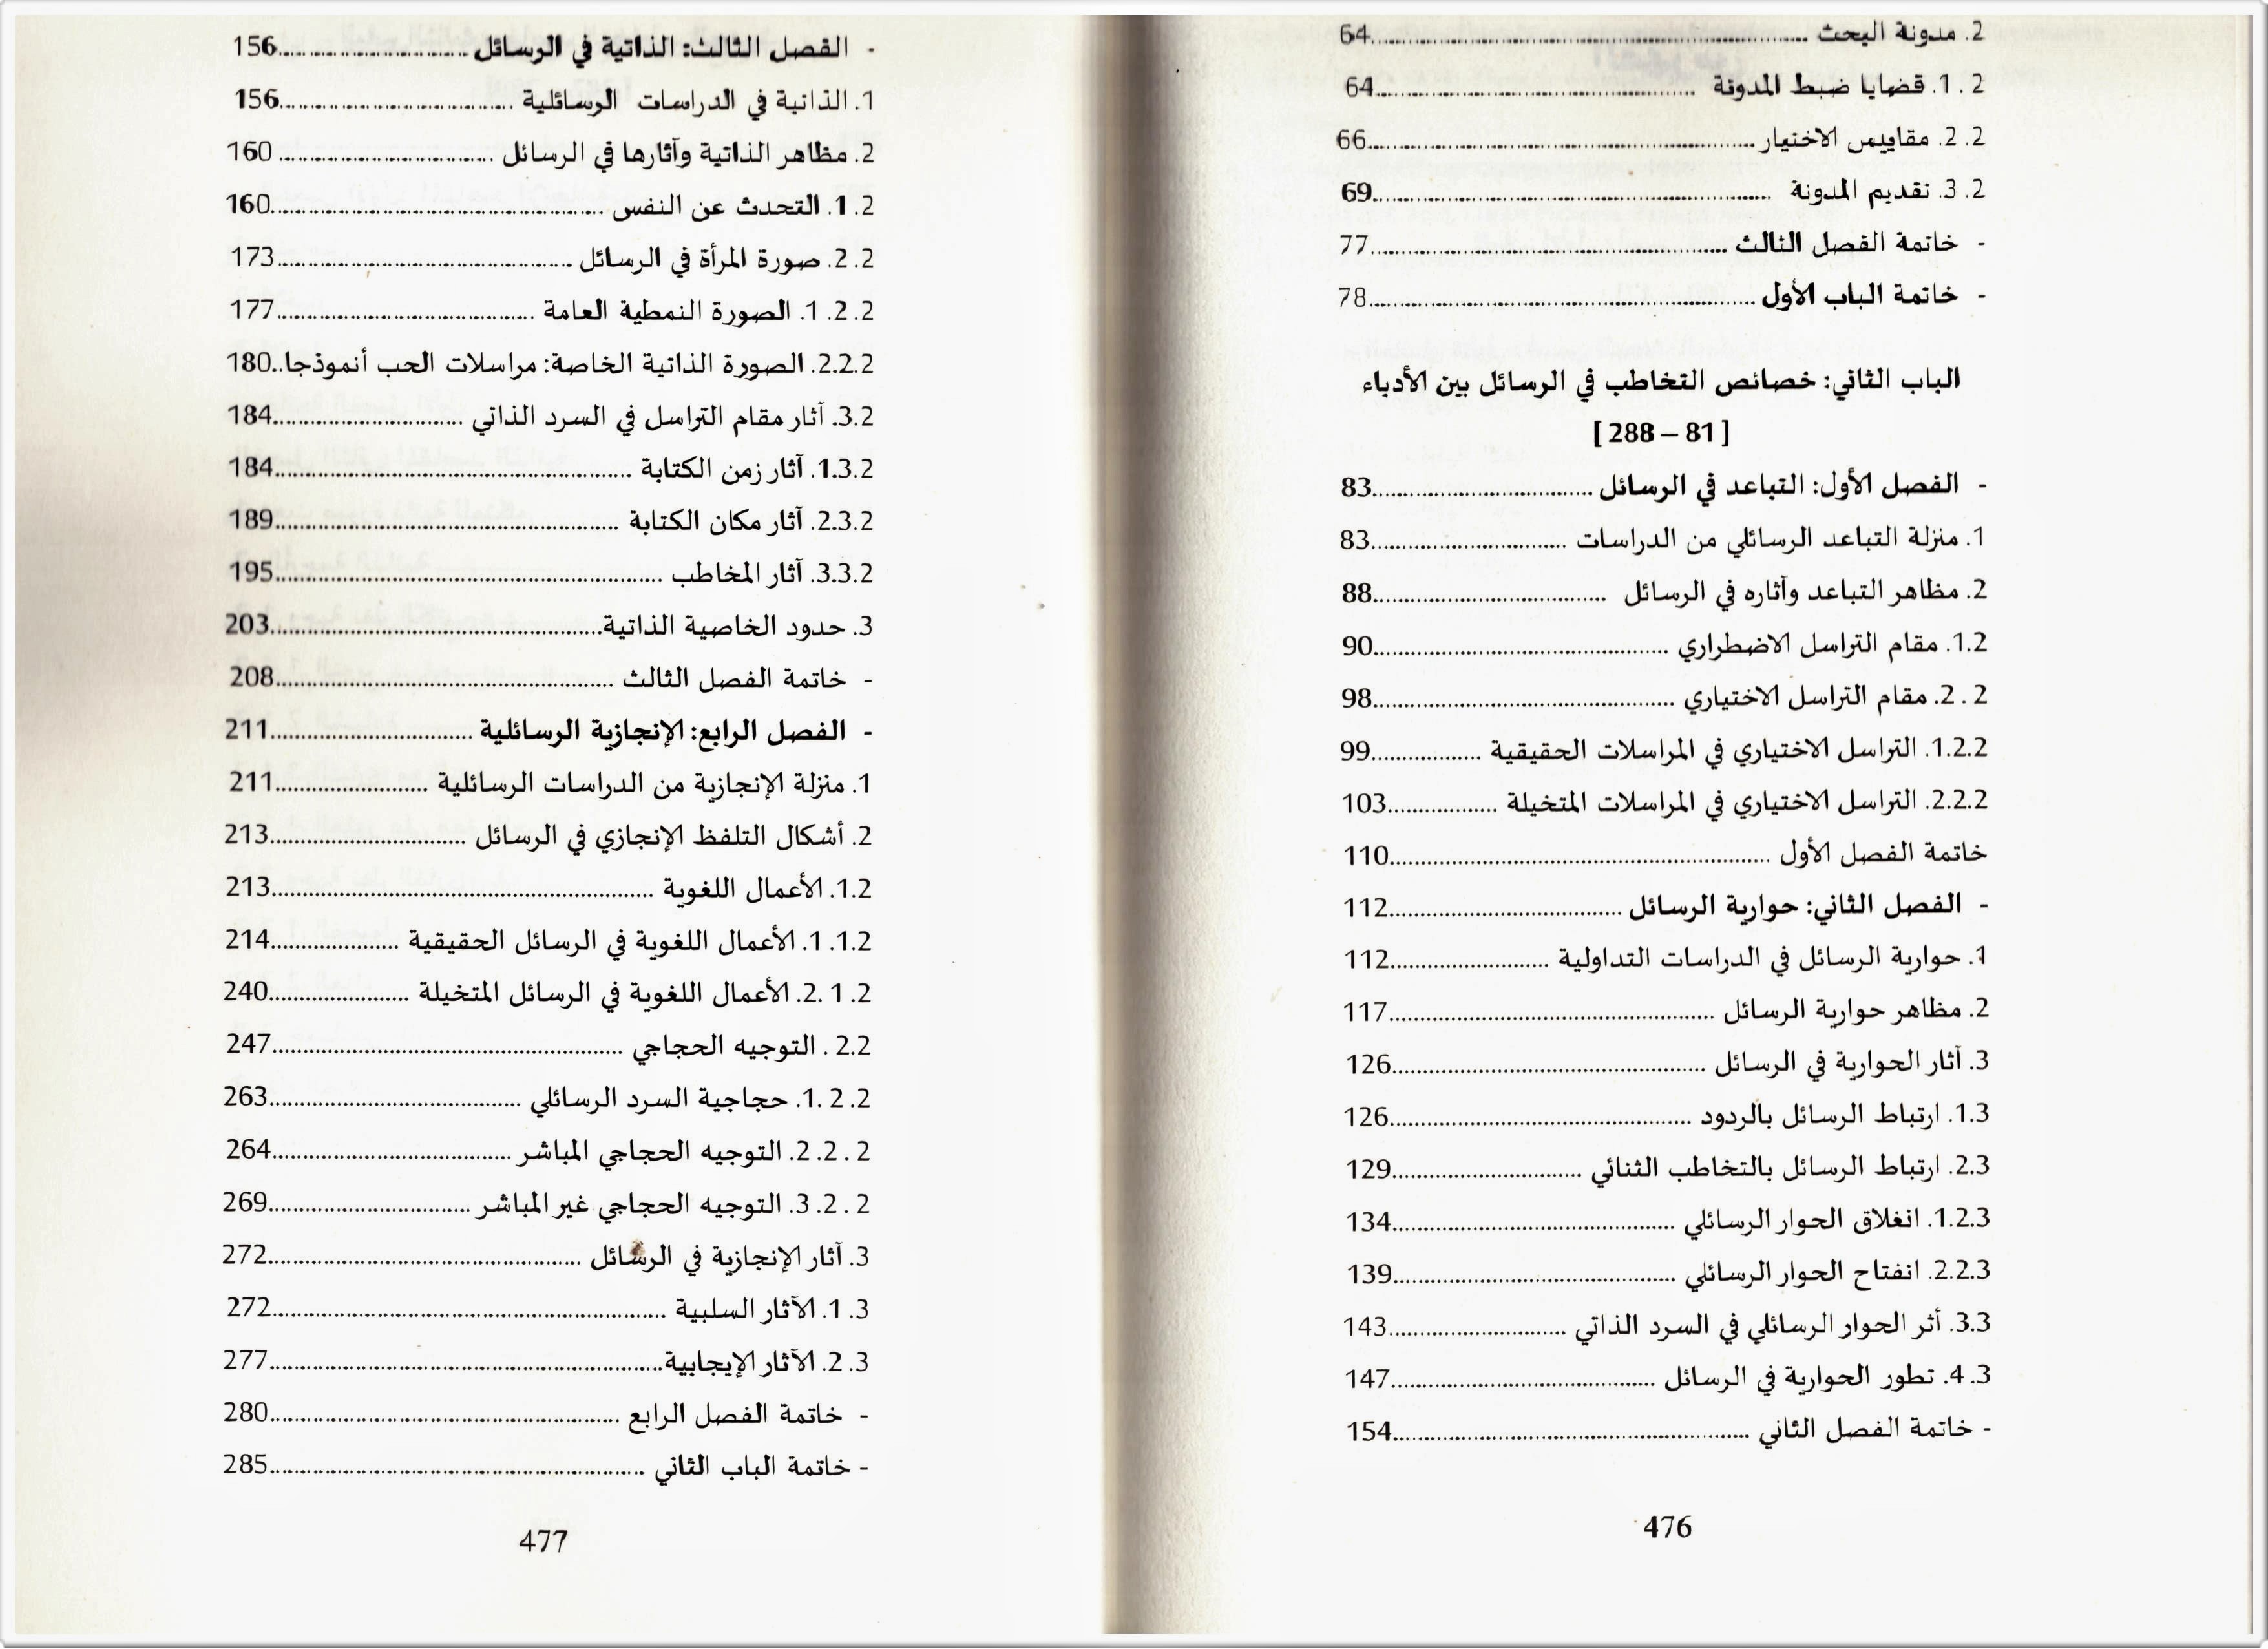 2. مدونة البحث ........ 64
1.2. قضايا ضبط المدونة ........ 64
2.2. مقاييس الاختيار ........ 66
3.2. تقديم المدونة ........ 69
- خاتمة الفصل الثالث ........ 77
- خاتمة الباب الأول ........ 78
الباب الثاني: خصائص التخاطب في الرسائل بين الأدباء
[81 – 288]
- الفصل الأول: التباعد في الرسائل ........ 83
1. منزلة التباعد الرسائلي من الدراسات ........ 83
2. مظاهر التباعد وآثاره في الرسائل ........ 88
1.2. مقام التراسل الاضطراري ........ 90
2.2. مقام التراسل الاختياري ........ 98
1.2.2. التراسل الاختياري في المراسلات الحقيقية ........ 99
2.2.2. التراسل الاختياري في المراسلات المتخيلة ........ 103
خاتمة الفصل الأول ........ 110
- الفصل الثاني: حوارية الرسائل ........ 112
1. حوارية الرسائل في الدراسات التداولية ........ 112
2. مظاهر حوارية الرسائل ........ 117
3. آثار الحوارية في الرسائل ........ 126
1.3. ارتباط الرسائل بالردود ........ 126
2.3. ارتباط الرسائل بالتخاطب الثنائي ........ 129
1.2.3. انغلاق الحوار الرسائلي ........ 134
2.2.3. انفتاح الحوار الرسائلي ........ 139
3.3. أثر الحوار الرسائلي في السرد الذاتي ........ 143
4.3. تطور الحوارية في الرسائل ........ 147
- خاتمة الفصل الثاني ........ 154
476
- الفصل الثالث: الذاتية في الرسائل ........ 156
1. الذاتية في الدراسات الرسائلية ........ 156
2. مظاهر الذاتية وآثارها في الرسائل ........ 160
1.2. التحدث عن النفس ........ 160
2.2. صورة المرأة في الرسائل ........ 173
1.2.2. الصورة النمطية العامة ........ 177
2.2.2. الصورة الذاتية الخاصة: مراسلات الحب أنموذجا..180
3.2. آثار مقام التراسل في السرد الذاتي ........ 184
1.3.2. آثار زمن الكتابة ........ 184
2.3.2. آثار مكان الكتابة ........ 189
3.3.2. آثار المخاطب ........ 195
3. حدود الخاصية الذاتية ........ 203
- خاتمة الفصل الثالث ........ 208
- الفصل الرابع: الإنجازية الرسائلية ........ 211
1. منزلة الإنجازية من الدراسات الرسائلية ........ 211
2. أشكال التلفظ الإنجازي في الرسائل ........ 213
1.2. الأعمال اللغوية ........ 213
1.1.2. الأعمال اللغوية في الرسائل الحقيقية ........ 214
2.1.2. الأعمال اللغوية في الرسائل المتخيلة ........ 240
2.2. التوجيه الحجاجي ........ 247
1.2.2. حجاجية السرد الرسائلي ........ 263
2.2.2. التوجيه الحجاجي المباشر ........ 264
3.2.2. التوجيه الحجاجي غير المباشر ........ 269
3. آثار الإنجازية في الرسائل ........ 272
1.3. الآثار السلبية ........ 272
2.3. الآثار الإيجابية ........ 277
- خاتمة الفصل الرابع ........ 280
- خاتمة الباب الثاني ........ 285
477